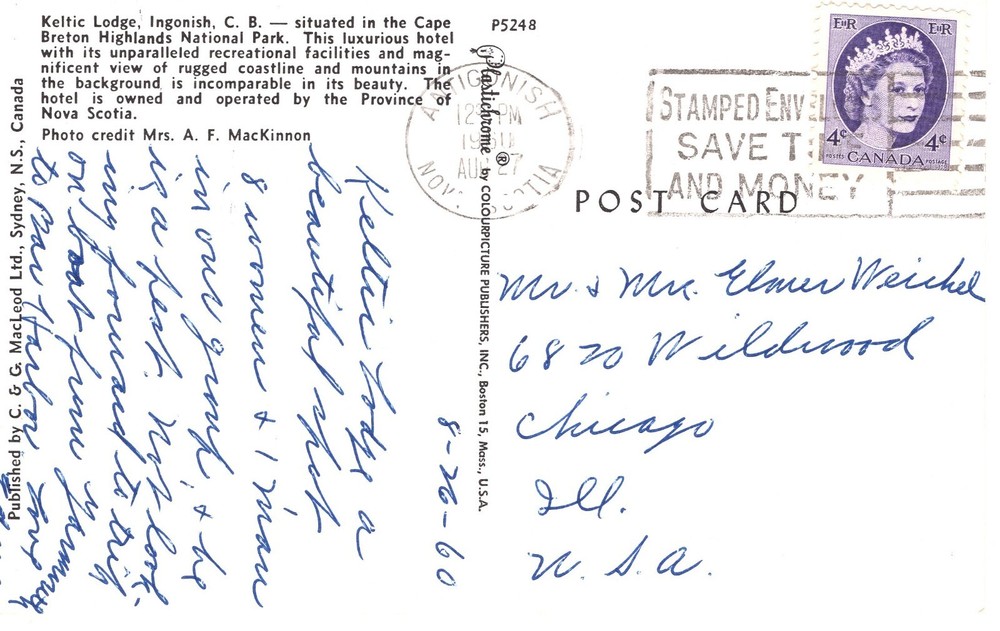 Keltic Lodge, Ingonish, C. B. — situated in the Cape
Breton Highlands National Park. This luxurious hotel
with its unparalleled recreational facilities and mag-
nificent view of rugged coastline and mountains in
the background is incomparable in its beauty. The
hotel is owned and operated by the Province of
Nova Scotia.
Photo credit Mrs. A. F. MacKinnon
P5248
Published by C. & G. MacLeod Ltd., Sydney, N.S., Canada
Plastichrome ® by COLOURPICTURE PUBLISHERS, INC., Boston 15, Mass., U.S.A.
ANTIGONISH
PM
AUG 27
NOVA SCOTIA
STAMPED ENVELOPE
SAVE T
AND MONEY
EIIR EIIR
4¢ 4¢
POSTES POSTAGE
CANADA
POST CARD
8-26-60
Keltic Lodge a
beautiful spot
8 women & 1 man
in our group, & he
is a pest. Not look-
ing forward to trip
on boat from
to Bar Harbor Love
Mr. & Mrs. Elmer Weichel
6820 Wildwood
Chicago
Ill.
U. S. A.